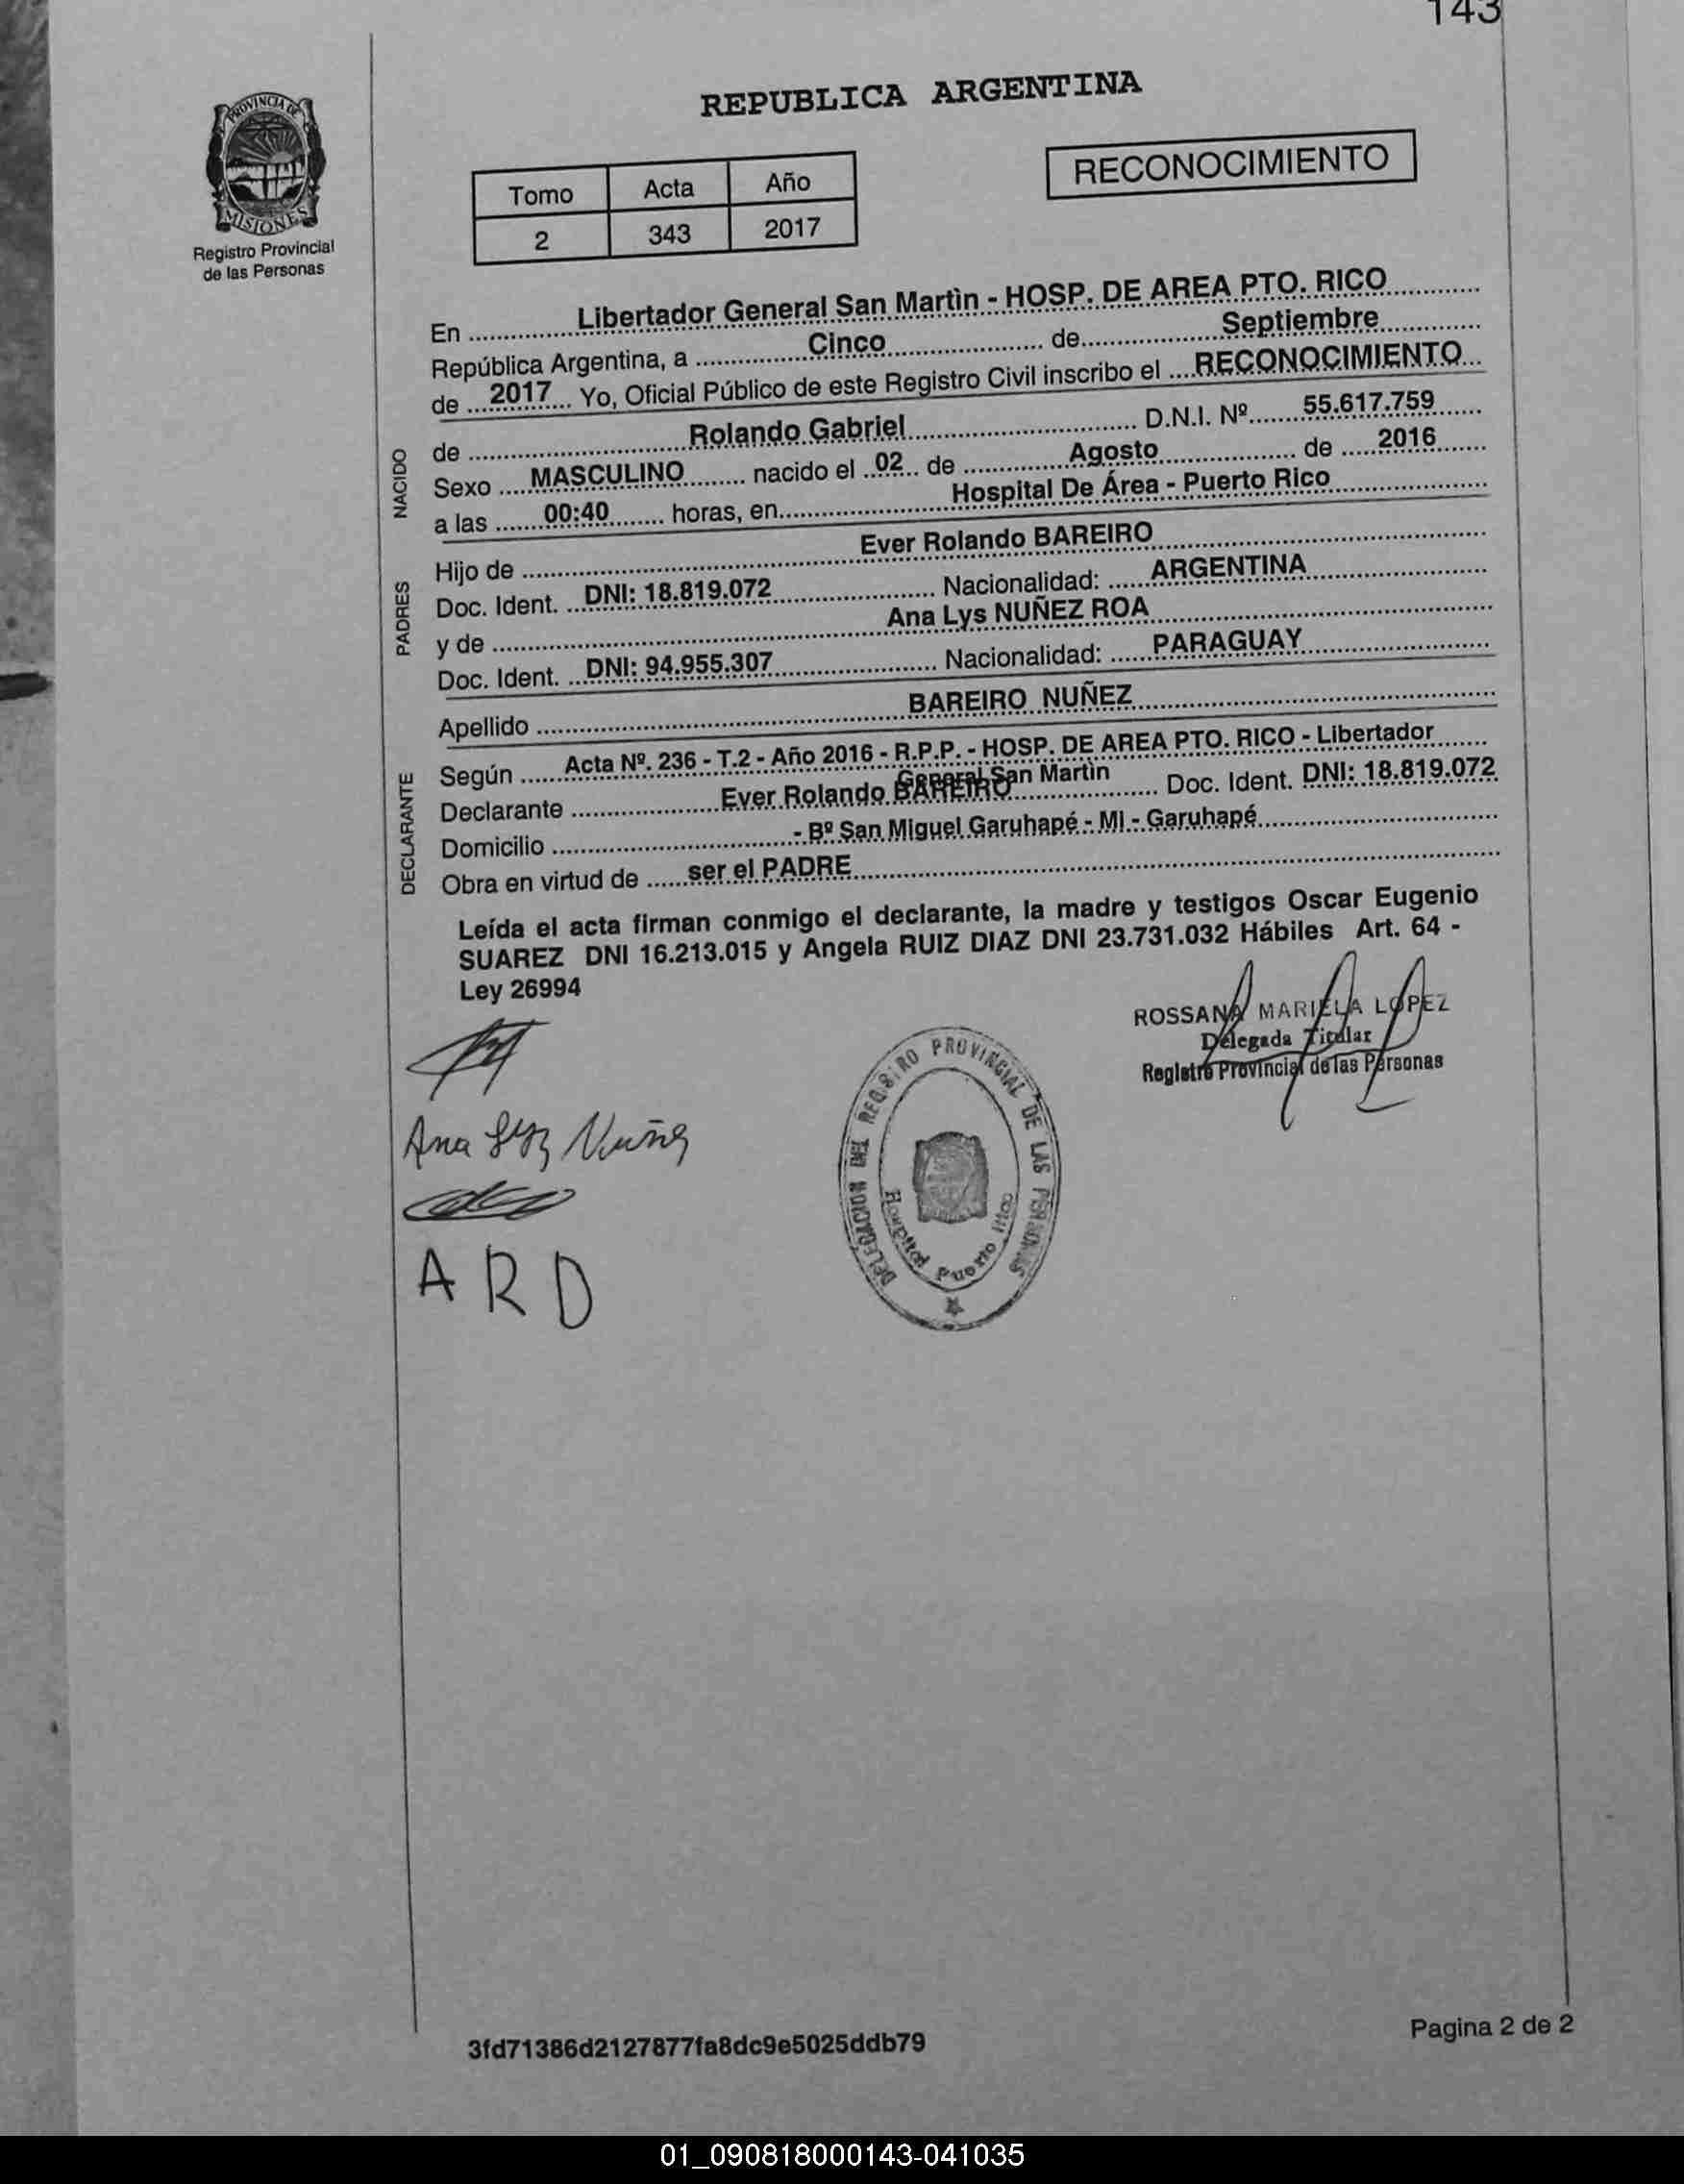 143
REPUBLICA ARGENTINA
PROVINCIA DE
MISIONES
Registro Provincial
de las Personas
RECONOCIMIENTO
Tomo Acta Año
2 343 2017
En Libertador General San Martìn - HOSP. DE AREA PTO. RICO
República Argentina, a Cinco de Septiembre
de 2017 Yo, Oficial Público de este Registro Civil inscribo el RECONOCIMIENTO
NACIDO
de Rolando Gabriel D.N.I. Nº 55.617.759
Sexo MASCULINO nacido el 02 de Agosto de 2016
a las 00:40 horas, en Hospital De Área - Puerto Rico
PADRES
Hijo de Ever Rolando BAREIRO
Doc. Ident. DNI: 18.819.072 Nacionalidad: ARGENTINA
y de Ana Lys NUÑEZ ROA
Doc. Ident. DNI: 94.955.307 Nacionalidad: PARAGUAY
Apellido BAREIRO NUÑEZ
DECLARANTE
Según Acta Nº. 236 - T.2 - Año 2016 - R.P.P. - HOSP. DE AREA PTO. RICO - Libertador
General San Martìn
Declarante Ever Rolando BAREIRO Doc. Ident. DNI: 18.819.072
Domicilio - Bº San Miguel Garuhapé - MI - Garuhapé
Obra en virtud de ser el PADRE
Leída el acta firman conmigo el declarante, la madre y testigos Oscar Eugenio
SUAREZ DNI 16.213.015 y Angela RUIZ DIAZ DNI 23.731.032 Hábiles Art. 64 -
Ley 26994
ROSSANA MARIELA LOPEZ
Delegada Titular
Registro Provincial de las Personas
Ana Lyz Nuñez
A R D
DELEGACION DEL REGISTRO PROVINCIAL DE LAS PERSONAS
Hospital Puerto Rico
3fd71386d2127877fa8dc9e5025ddb79
Pagina 2 de 2
01_090818000143-041035